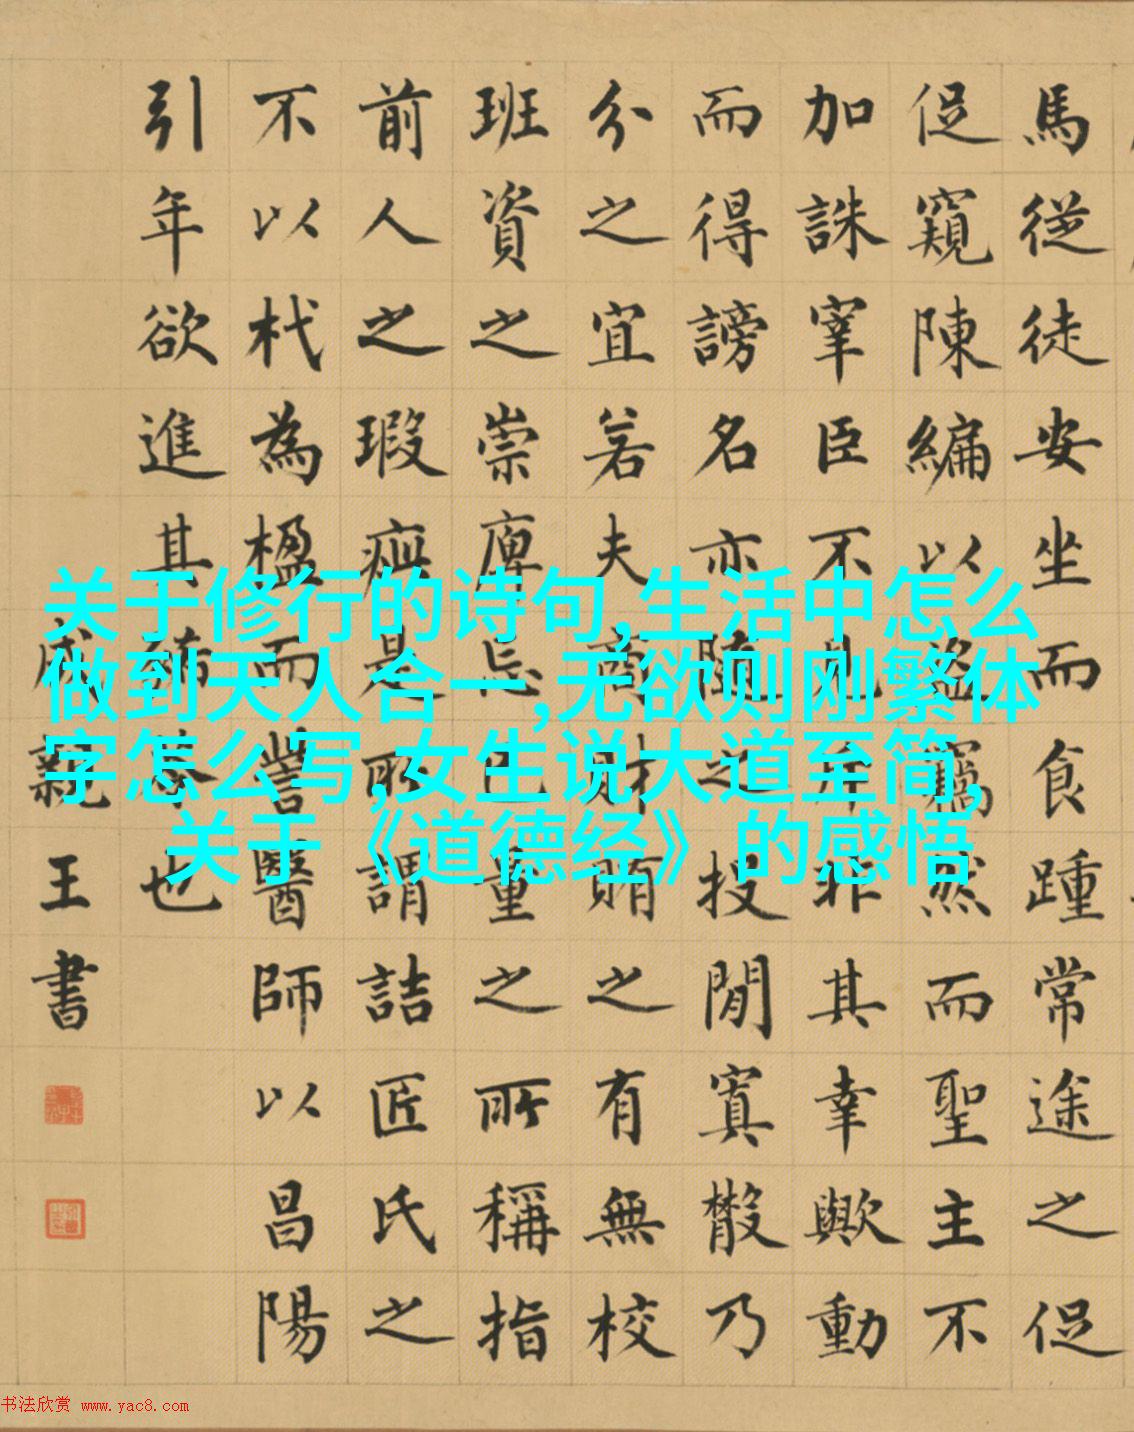 馬從徒安坐而食踵常途之促
促窺陳編以盜竊然而聖主不
加誅宰臣不見斥非其幸歟動
而得謗名亦隨之投閒寘散乃
分之宜若夫商財賄之有無校
班資之崇庳忘己量之所稱指
前人之瑕疵是所謂詰匠氏之
不以杙為楹而訾醫師以昌陽
引年欲進其豨苓也
成親王書
关于修行的诗句,生活中怎么
做到天人合一,无欲则刚繁体
字怎么写,女生说大道至简,
关于《道德经》的感悟
书法欣赏 www.yac8.com